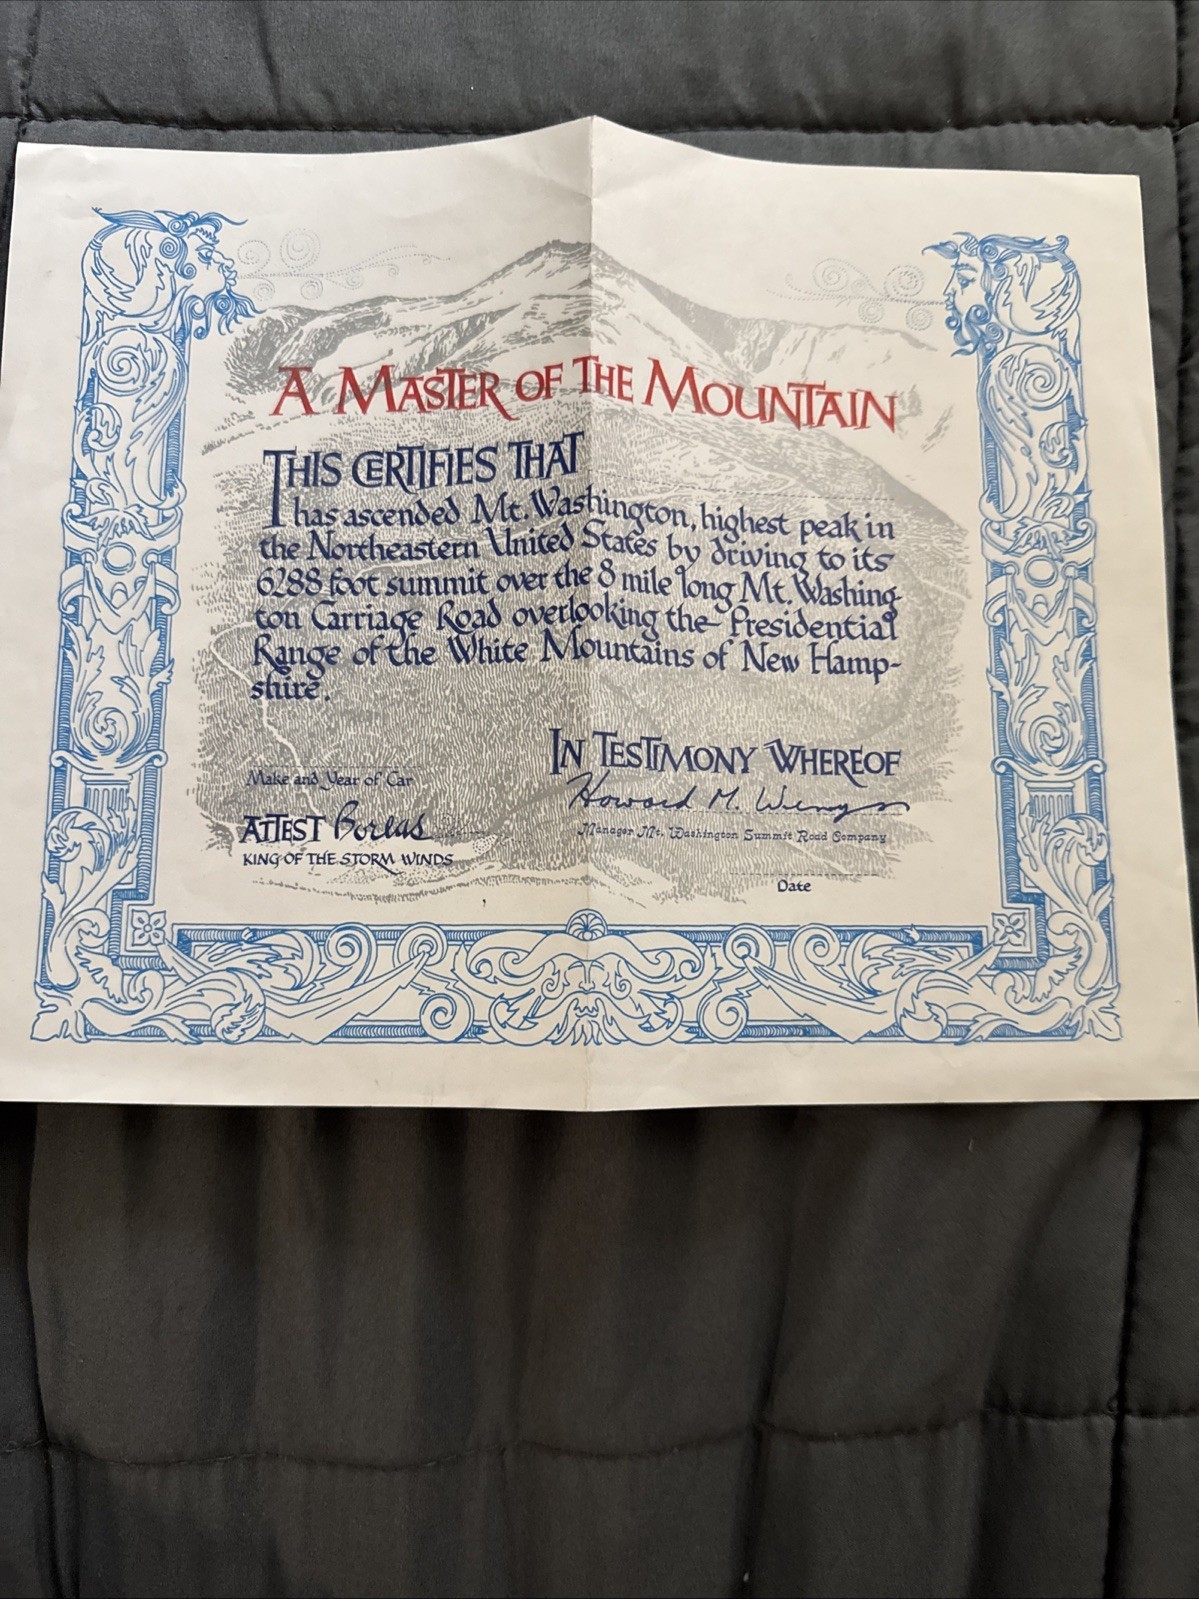 A MASTER OF THE MOUNTAIN
THIS CERTIFIES THAT
has ascended Mt. Washington, highest peak in
the Northeastern United States by driving to its
6288 foot summit over the 8 mile long Mt. Washing-
ton Carriage Road overlooking the Presidential
Range of the White Mountains of New Hamp-
shire.
IN TESTIMONY WHEREOF
Make and Year of Car
Howard M.
ATTEST Boreas
Manager Mt. Washington Summit Road Company
KING OF THE STORM WINDS
Date